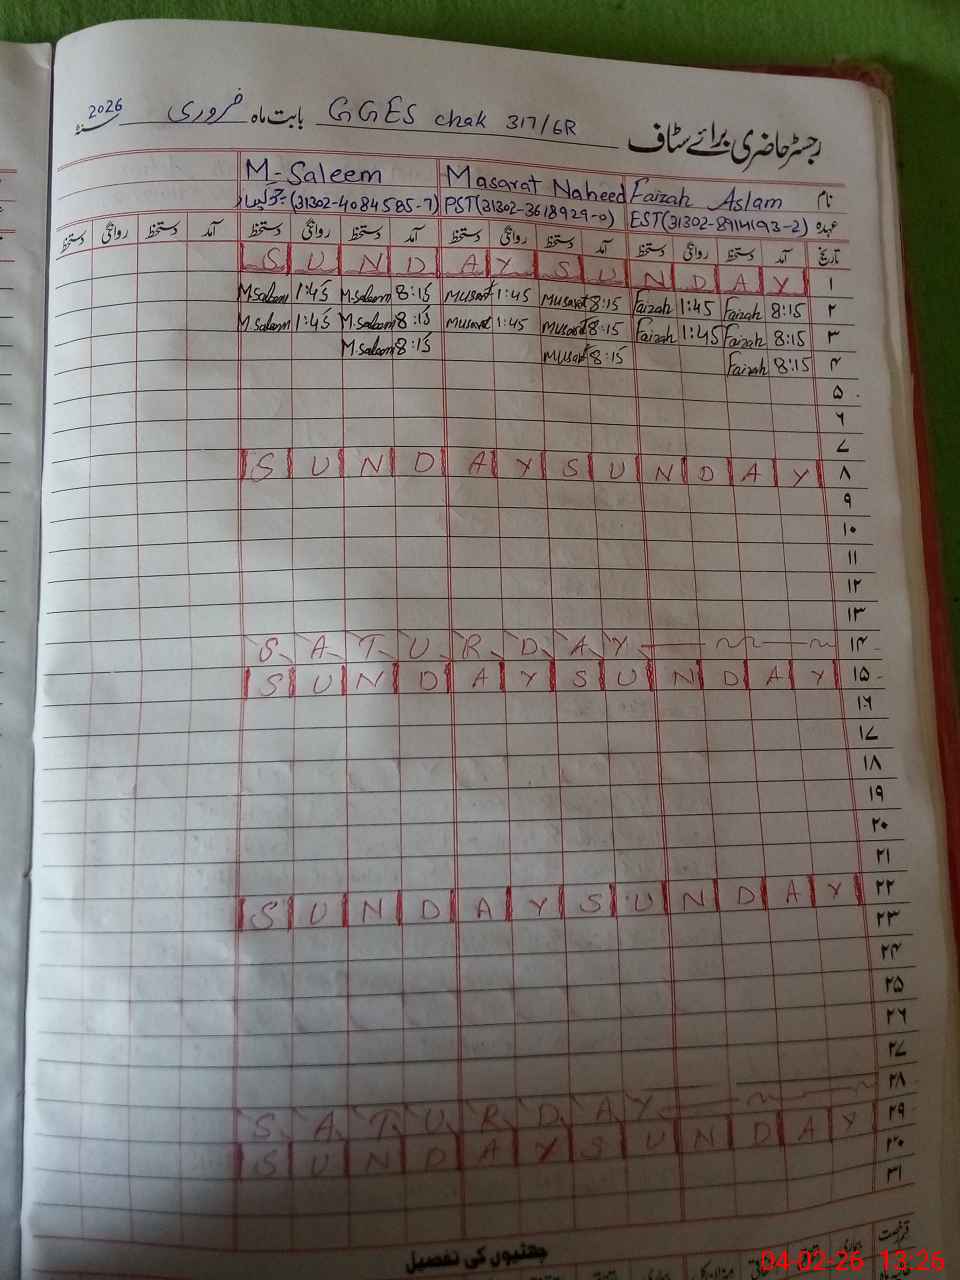 رجسٹر حاضری برائے سٹاف GGES chak 317/6R بابت ماہ فروری سنہ 2026
نام Faizah Aslam Masarat Naheed M-Saleem
عہدہ EST(31302-8914193-2) PST(31302-3618929-0) (31302-4084585-7)
تاریخ آمد دستخط روانگی دستخط آمد دستخط روانگی دستخط آمد دستخط روانگی دستخط آمد دستخط روانگی دستخط
۱ S U N D A Y S U N D A Y
۲ 8:15 Faizah 1:45 Faizah 8:15 Musarat 1:45 Musarat 8:15 M.Saleem 1:45 M.Saleem
۳ 8:15 Faizah 1:45 Faizah 8:15 Musarat 1:45 Musarat 8:15 M.Saleem 1:45 M.Saleem
۴ 8:15 Faizah 8:15 Musarat 8:15 M.Saleem
۵
۶
۷
۸ S U N D A Y S U N D A Y
۹
۱۰
۱۱
۱۲
۱۳
۱۴ S A T U R D A Y
۱۵ S U N D A Y S U N D A Y
۱۶
۱۷
۱۸
۱۹
۲۰
۲۱
۲۲ S U N D A Y S U N D A Y
۲۳
۲۴
۲۵
۲۶
۲۷
۲۸ S A T U R D A Y
۲۹ S U N D A Y S U N D A Y
۳۰
۳۱
چھٹیوں کی تفصیل
قسم رخصت بیماری
04-02-26 13:26